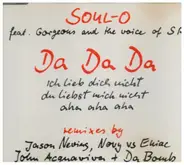 SOUL-O
feat. Gorgeous and the voice of S
Da Da Da
Ich lieb dich nicht
du liebst mich nicht
aha aha aha
remixes by
Jason Nevins, Novy vs Eniac
John Acquaviva + Da Bomb